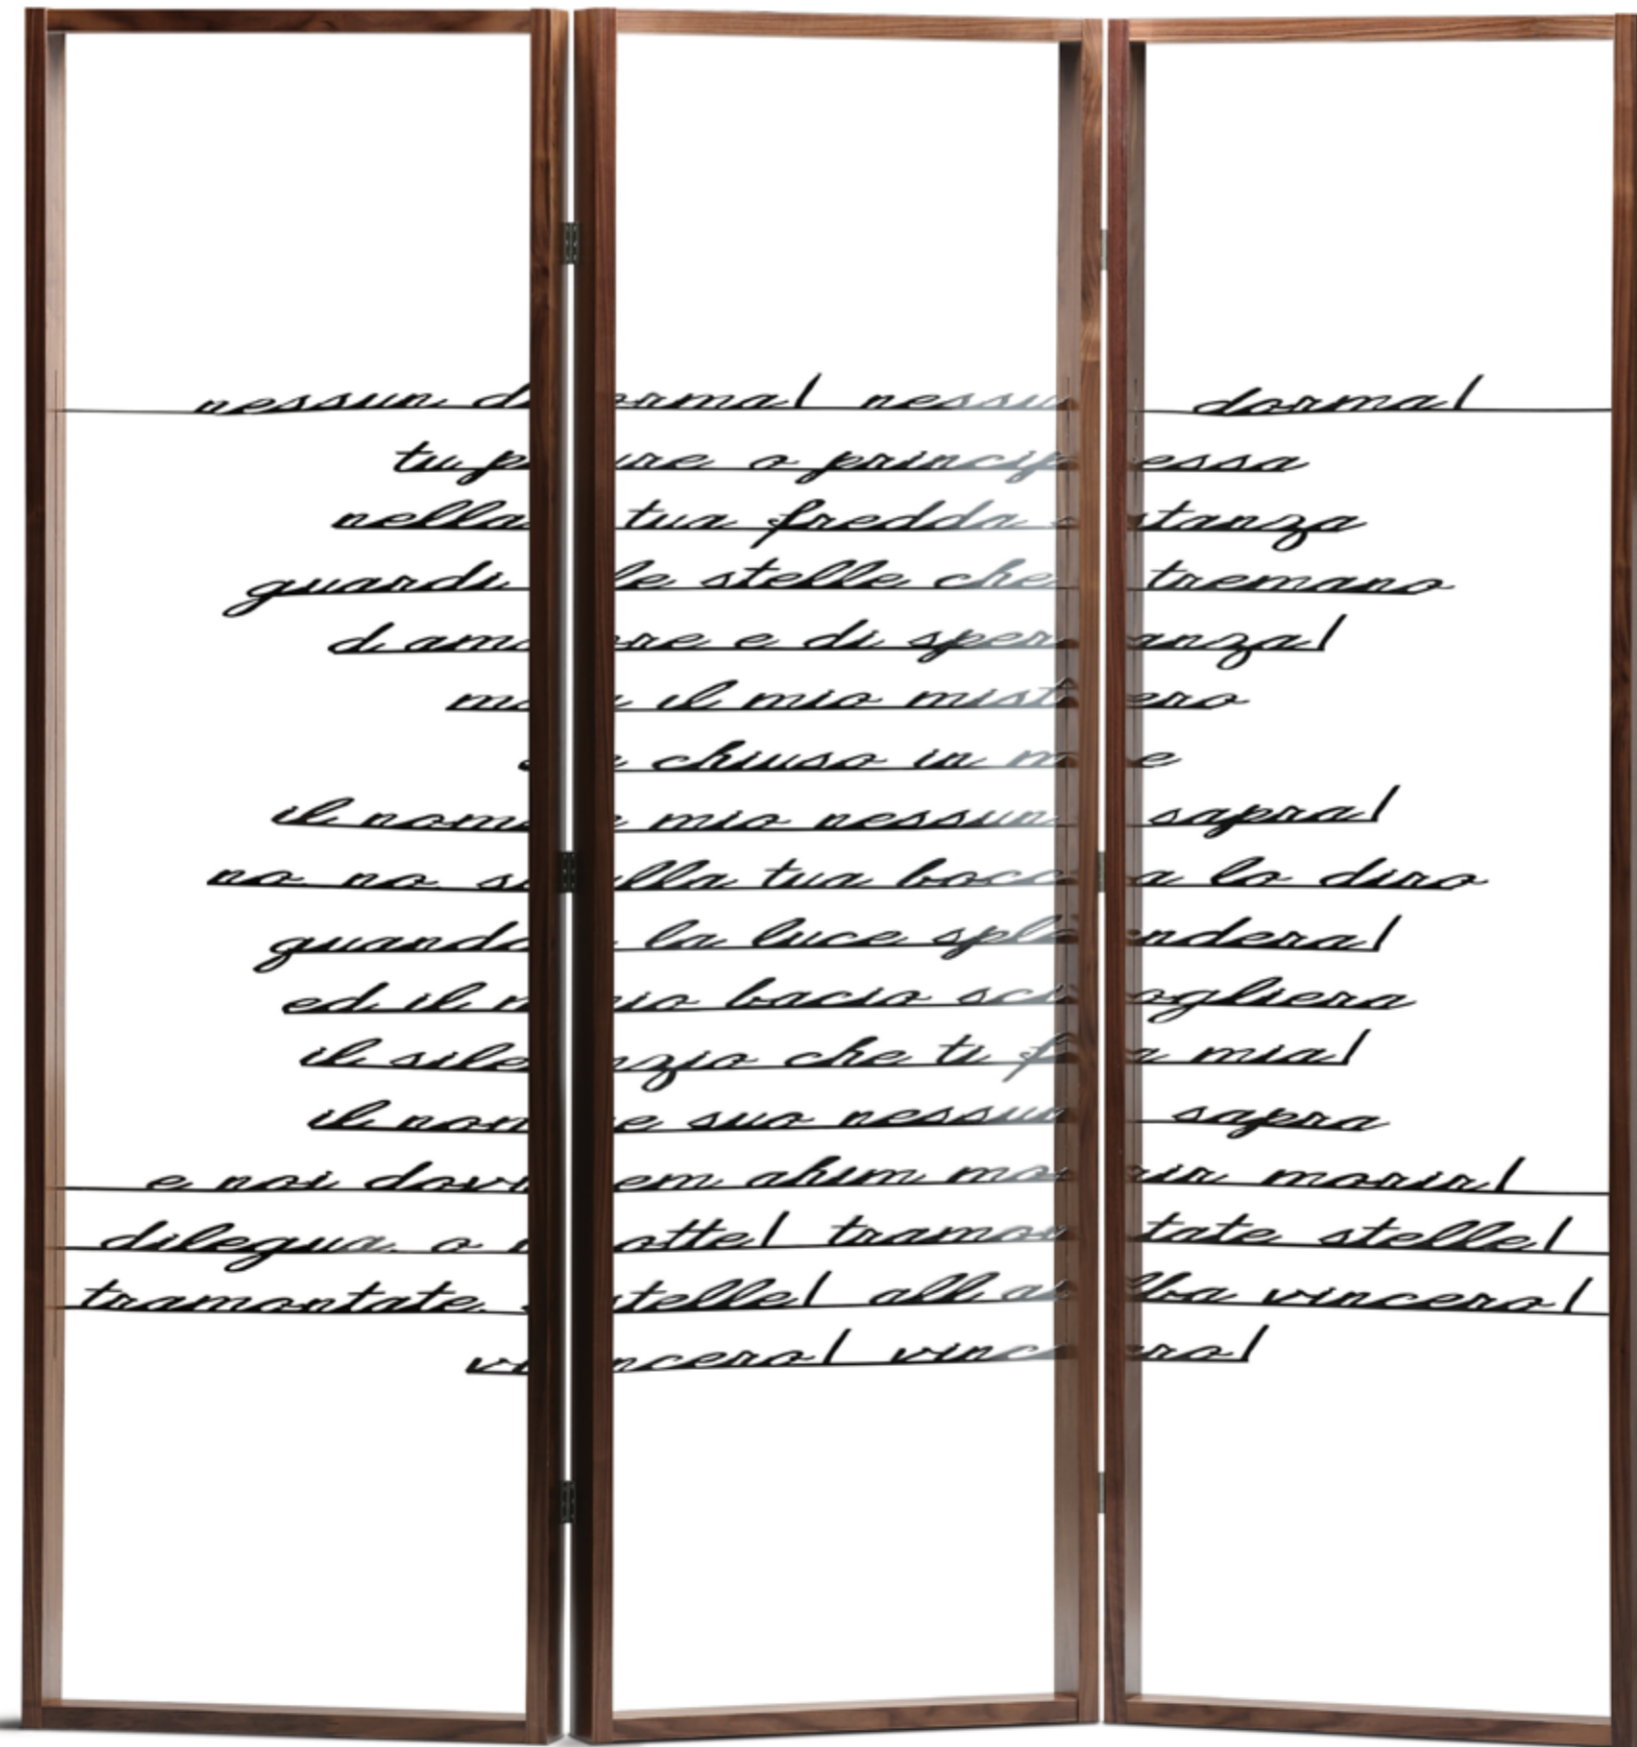 nessun dorma! nessun dorma!
tu pure o principessa
nella tua fredda stanza
guardi le stelle che tremano
d amore e di speranza!
ma il mio mistero
e chiuso in me
il nome mio nessun sapra!
no no sulla tua bocca lo diro
quando la luce splendera!
ed il mio bacio sciogliera
il silenzio che ti fa mia!
il nome suo nessun sapra
e noi dovrem ahim morir morir!
dilegua o notte! tramontate stelle!
tramontate stelle! all alba vincero!
vincero! vincero!